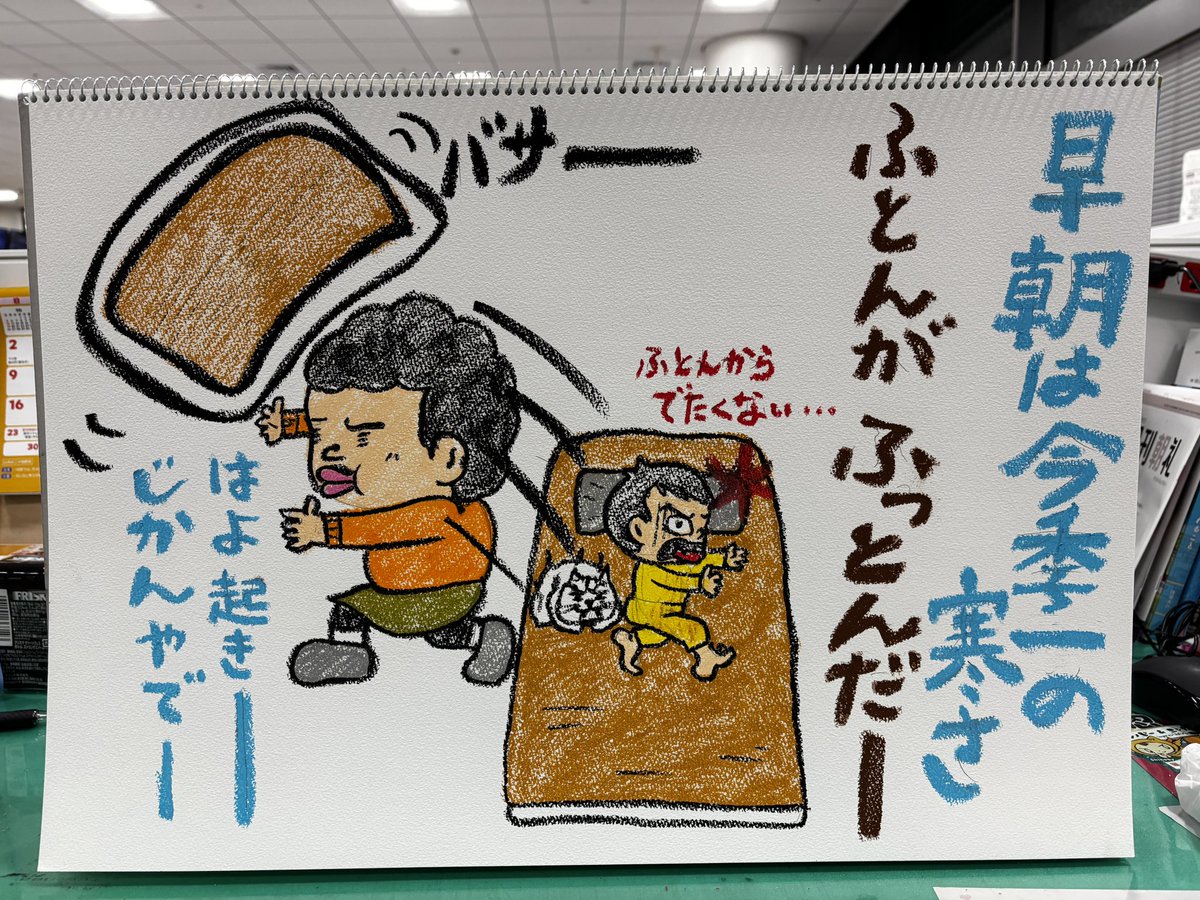 早朝は今季一の
寒さ
ふとんが ふっとんだー
バサー
ふとんから
でたくない…
はよ起きー
じかんやでー
2
9
16
23
30
FRISK
朝礼